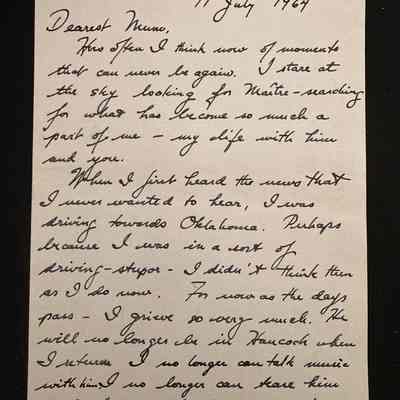 11 July 1964
Dearest Mum,
How often I think now of moments
that can never be again. I stare at
the sky looking for Maître - searching
for what has become so much a
part of me - my life with him
and you.
When I first heard the news that
I never wanted to hear, I was
driving towards Oklahoma. Perhaps
because I was in a sort of
driving-stupor - I didn't think then
as I do now. For now as the days
pass - I grieve so very much. He
will no longer be in Hancock when
I return I no longer can talk music
with him, I no longer can tease him